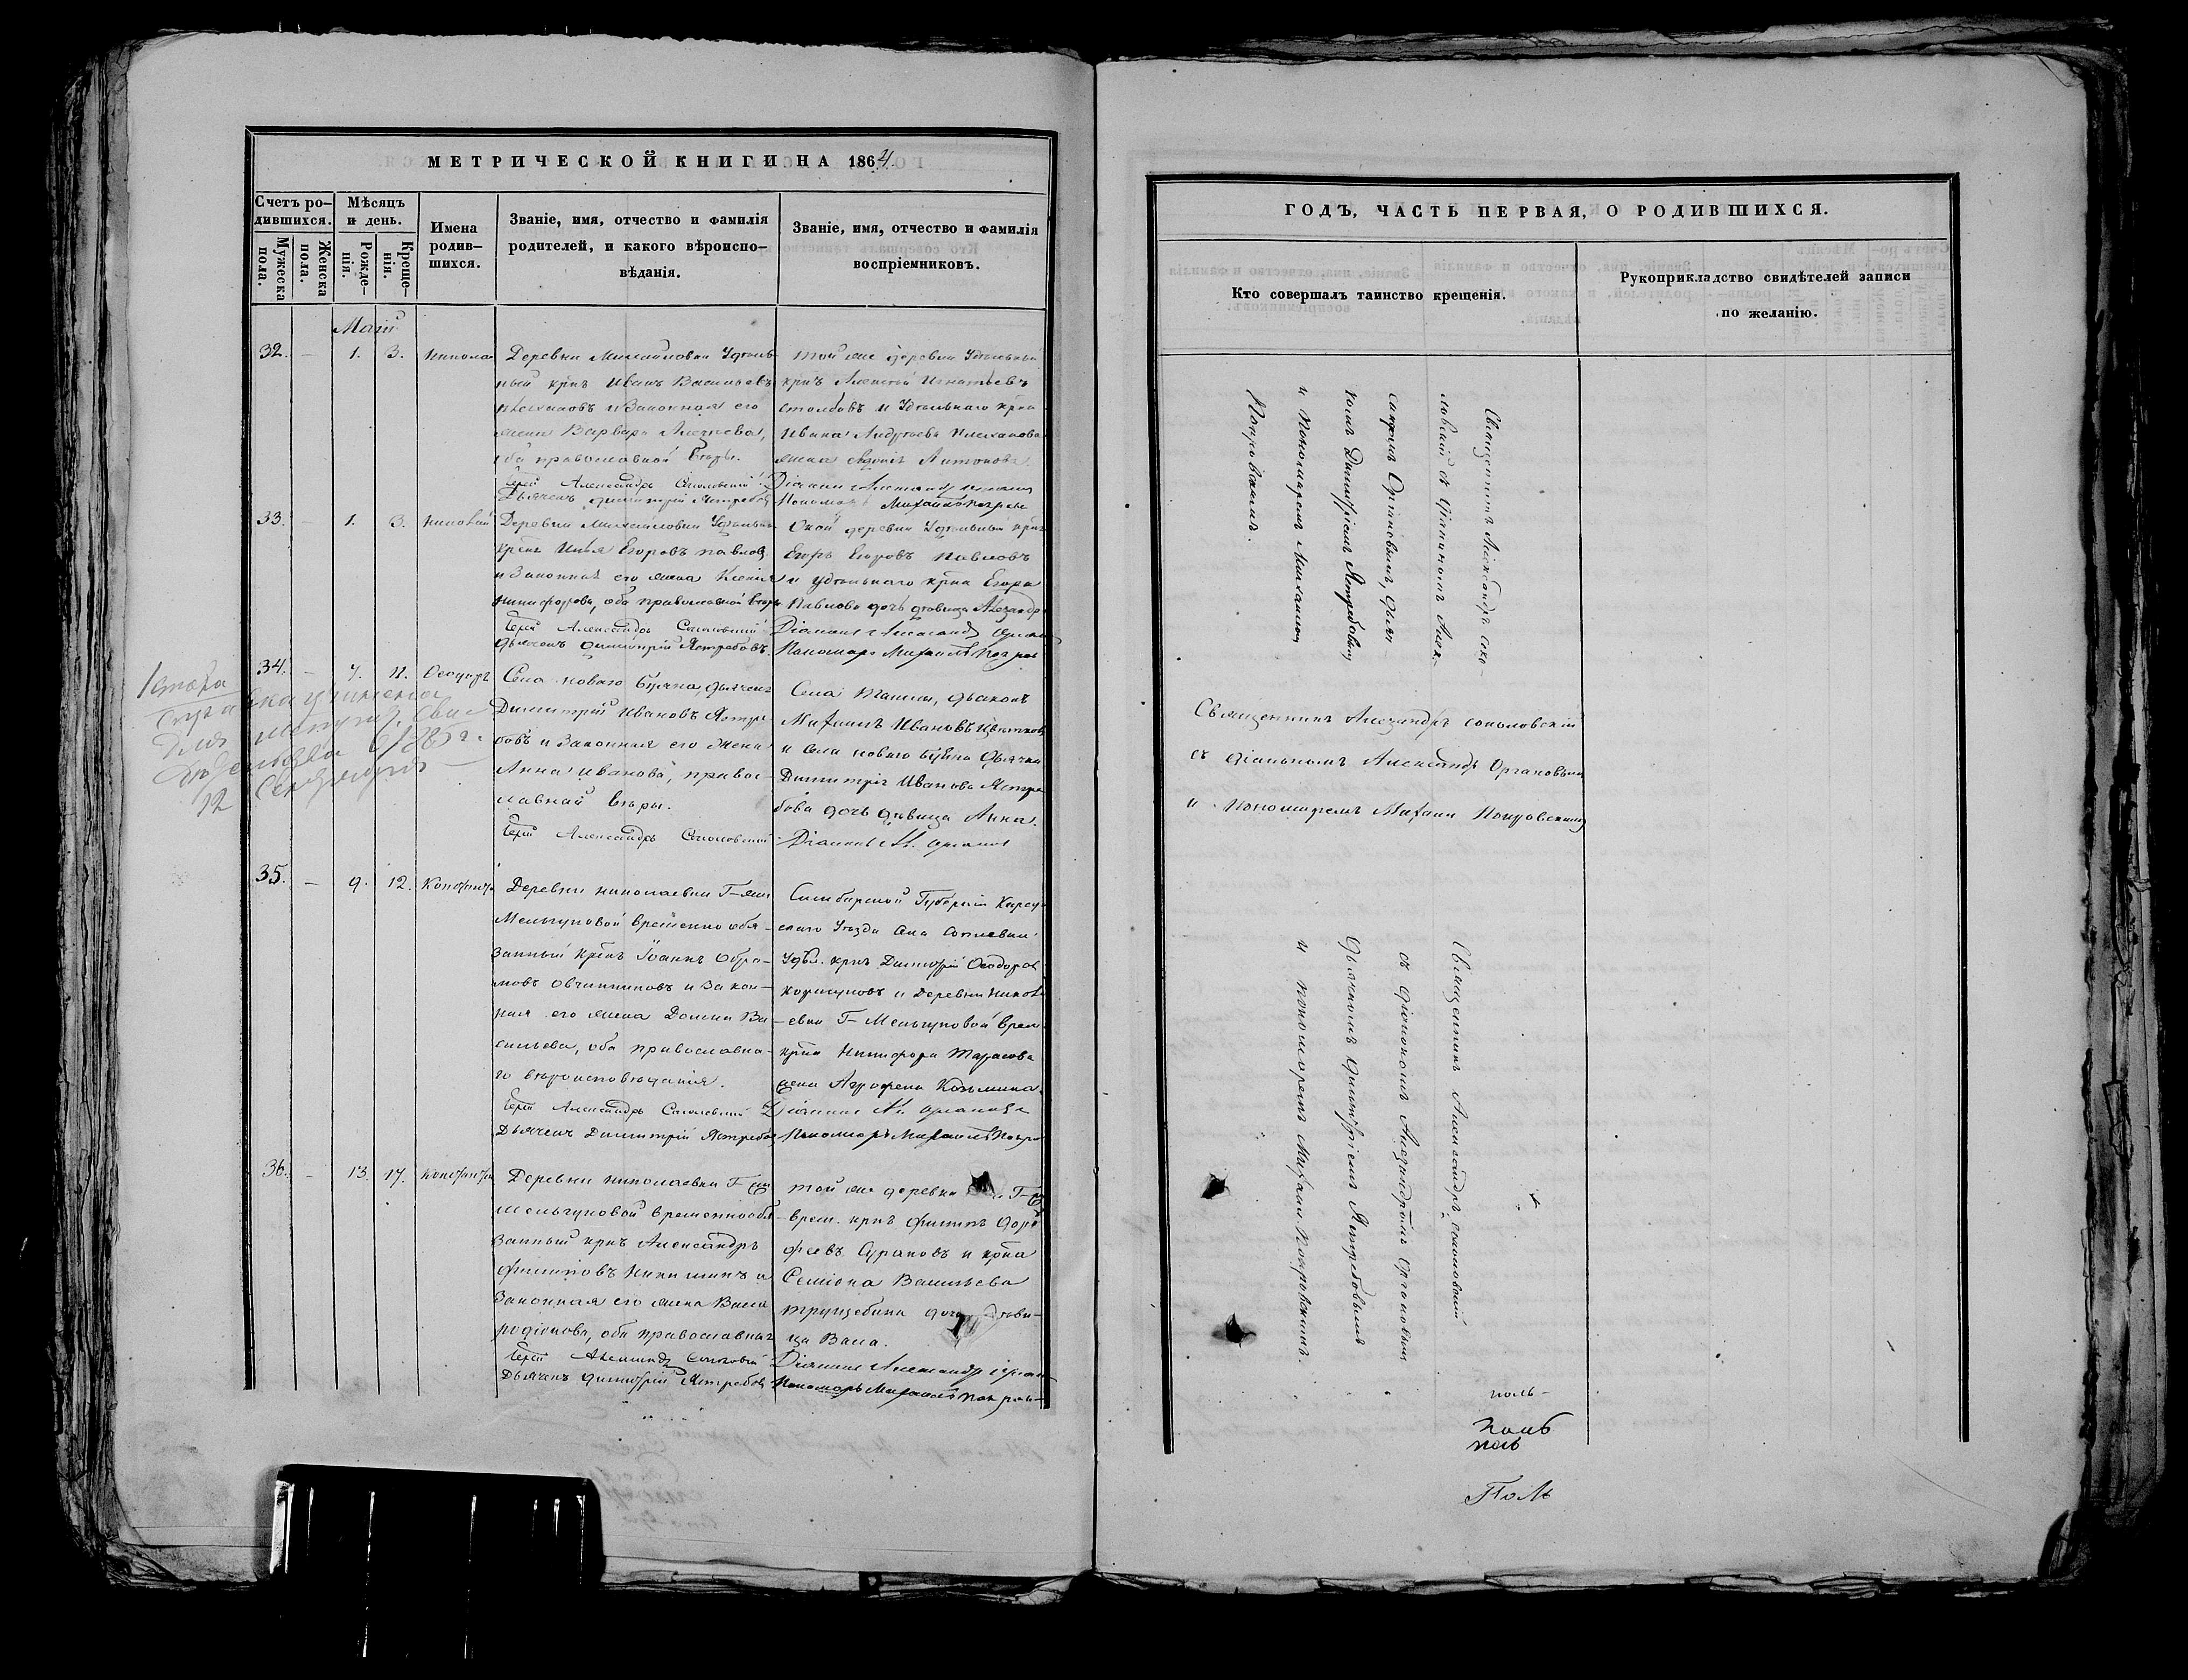 МЕТРИЧЕСКОЙ КНИГИ НА 1864.
Счетъ ро-
дившихся.
Мужеска
пола.
Женска
пола.
Мѣсяцъ
и день.
Рожде-
нія.
Креще-
нія.
Имена
родив-
шихся.
Званіе, имя, отчество и фамилія
родителей, и какого вѣроиспо-
вѣданія.
Званіе, имя, отчество и фамилія
воспріемниковъ.
Май
32. — 1. 3. Николай
Деревни Михайловки Удѣль-
ный крнъ Иванъ Васильевъ
Плехановъ и Законная его
жена Варвара Алексѣева,
оба православной вѣры.
Іерей Александръ Соколовскій
Дьячекъ Димитрій Ястребовъ
той же деревни Удѣльный
крнъ Алексѣй Игнатьевъ
Столбовъ и Удѣльнаго крна
Ивана Андреева Плеханова
жена Антонова.
Діаконъ Александръ
Пономарь Михаилъ Покров
33. — 1. 3. Николай
Деревни Михайловки Удѣльный
крнъ Илья Егоровъ Павловъ
и Законная его жена Ксенія
Никифорова, оба православной вѣры
Іерей Александръ Соколовскій
Дьячекъ Димитрій Ястребовъ.
Оной деревни Удѣльный крнъ
Егоръ Егоровъ Павловъ
и удѣльнаго крна Егора
Павлова дочь дѣвица Александра
Діаконъ Александръ
Пономарь Михаилъ Покров
34. — 7. 11. Ѳеодоръ
Села Новаго Буяна, дьячекъ
Димитрій Ивановъ Ястре-
бовъ и Законная его Жена
Анна Иванова, правос-
лавной вѣры.
Іерей Александръ Соколовскій
Села дьяконъ
Михаилъ Ивановъ Цвѣтковъ
и села Новаго Буяна Дьячка
Димитрія Иванова Ястре-
бова дочь дѣвица Анна.
Діаконъ Ал. Органовъ
справка учинена
для метрич. Сви
дѣтельства 1883 г.
12 Сентября
35. — 9. 12. Константинъ
Деревни Николаевки Г-жи
Мельгуновой временно обя-
занный крнъ Іоаннъ Абра-
мовъ Овчинниковъ и Закон-
ная его жена Домна Ва-
сильева, оба православна-
го вѣроисповѣданія.
Іерей Александръ Соколовскій
Дьячекъ Димитрій Ястребовъ
Симбирской Губерніи Карсун-
скаго Уѣзда Села
Удѣл. крнъ Димитрій Ѳеодоровъ
Коршуновъ и Деревни Никола-
евки Г- Мельгуновой врем.
крна Никифора Тарасова
жена Агрофена Козьмина.
Діаконъ Ал. Органовъ
Пономарь Михаилъ Покров
36. — 13. 17. Константинъ
Деревни Николаевки Г-жи
Мельгуновой временнообя-
занный крнъ Александръ
Филиповъ Никишинъ и
Законная его жена Васса
Родіонова, оба православныя
Іерей Александръ Соколовскій
Дьячекъ Димитрій Ястребовъ
той же деревни Г-жи
врем. крнъ Филипъ Доро-
феевъ Сурановъ и крна
Семіона Васильева
дочь дѣви-
ца Васса.
Діаконъ Александръ Орган
Пономарь Михаилъ Покров-
ГОДЪ, ЧАСТЬ ПЕРВАЯ, О РОДИВШИХСЯ.
Кто совершалъ таинство крещенія.
Рукоприкладство свидѣтелей записи
по желанію.
Священникъ Александръ Соко-
ловскій съ діакономъ Алек-
сандромъ Органовымъ, дьяч-
комъ Димитріемъ Ястребовымъ
и Пономаремъ Михаиломъ
Покровскимъ.
Священникъ Александръ Соколовскій
съ діакономъ Александр Органовымъ
и Пономаремъ Михаил Покровскимъ
Священникъ Александръ Соколовскій
съ діакономъ Александромъ Органовымъ
Дьячкомъ Димитріемъ Ястребовымъ
и пономаремъ Михаил. Покровскимъ.